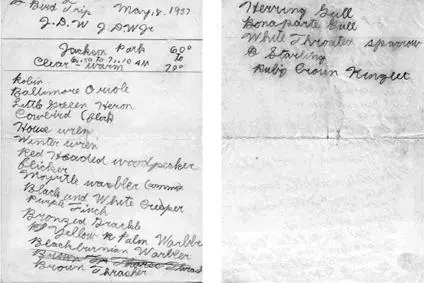 Bird Trip May, 8, 1957
J. D. W J. D. W Jr
Jackson Park 60°
to
Clear - warm 6:00 to 7:10 AM 70°
Robin
Baltimore Oriole
Little Green Heron
Cowbird (flock)
House wren
Winter wren
Red Headed woodpecker
Flicker
Myrtle warbler
Black and White Creeper
Purple Finch
Bronzed Grackle
Yellow Palm Warbler
Blackburnian Warbler
Brown Thrasher
Herring Gull
Bonaparte Gull
White Throated sparrow
Starling
Ruby Crown Kinglet